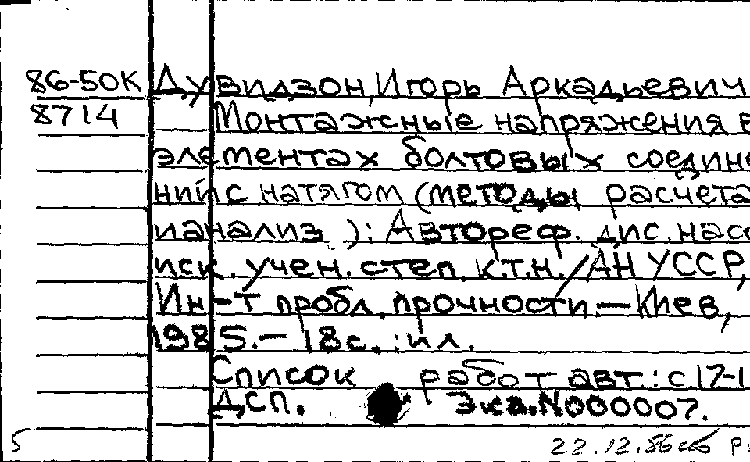 86-50К Дувидзон, Игорь Аркадьевич
8714 Монтажные напряжения в
элементах болтовых соедине
ний с натягом (методы расчета
и анализ): Автореф. дис. на со
иск. учен. степ. к.т.н. / АН УССР,
Ин-т пробл. прочности. — Киев,
1985. — 18 с. : ил.
Список работ авт.: с 17-1
ДСП. Экз. N000007.
5 22.12.86